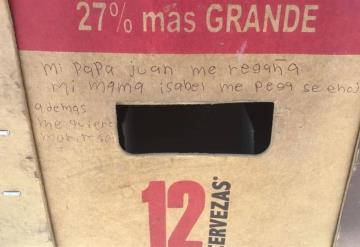 27% más GRANDE
mi papa juan me regaña
mi mama isabel me pega se enoj
ademas
me quiere
12
CERVEZAS*